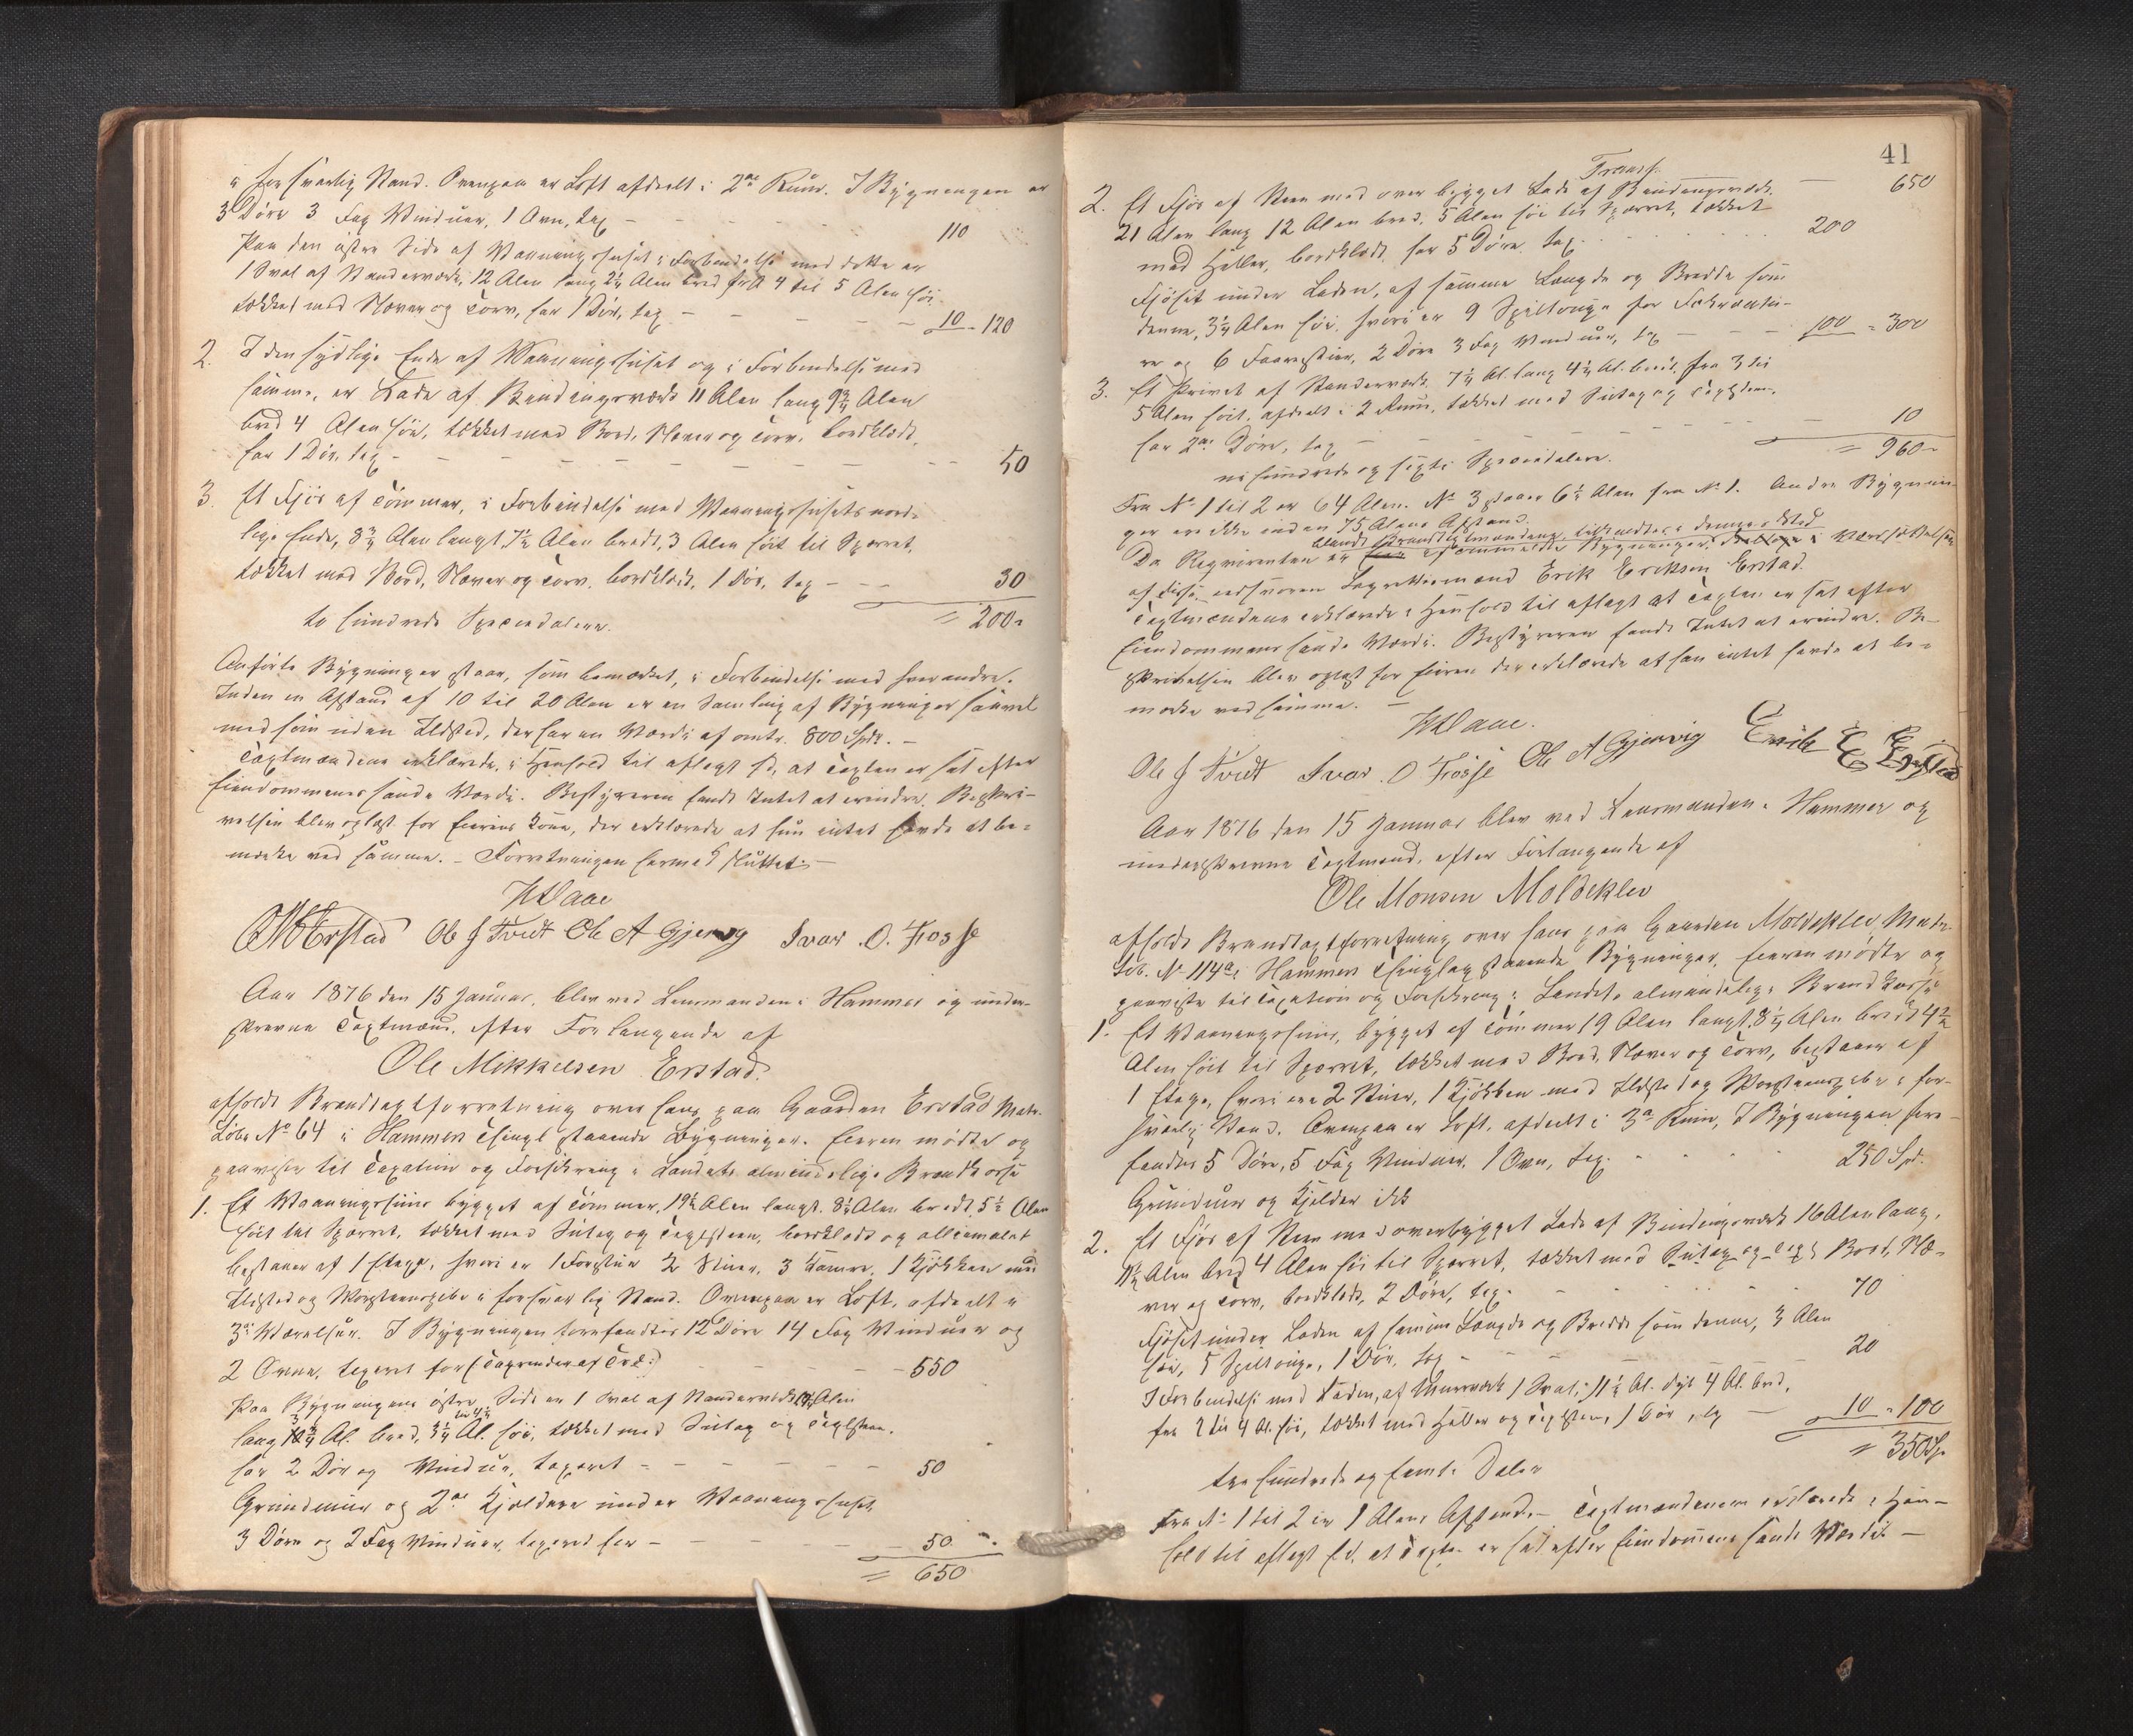 i forsvarlig Stand. Ovenpaa er Loft afdeelt i 2de Rum. I Bygningen er
3 Døre 3 Fag Vinduer, 1 Ovn, tax 110
Paa den østre Side af Vaaningshuset i Forbindelse med dette er
1 Sval af Standerværk, 12 Alen lang 2¼ Alen bred fra 4 til 5 Alen høi
tækket med Næver og Torv, har 1 Dør, tax 10 - 120
2. I den sydlige Ende af Vaaningshuset og i Forbindelse med
samme, er Lade af Bindingsværk 11 Alen lang 9¾ Alen
bred 4 Alen høi, tækket med Bord, Næver og Torv, bordklædt,
har 1 Dør, tax 50
3. Et Fjøs af Tømmer, i Forbindelse med Vaaningshusets nord-
lige Ende, 8¾ Alen langt, 7½ Alen bredt, 3 Alen høit til Sperret,
tækket med Bord, Næver og Torv, bordklædt, 1 Dør, tax 30
to hundrede Speciedalere. = 200 -
Anførte Bygninger staar, som bemærket, i Forbindelse med hverandre.
Inden en Afstand af 10 til 20 Alen er en Samling af Bygninger saavel
med som uden Ildsted, der har en Værdi af omtr. 800 Spdr. -
Taxtmændene erklærede, i Henhold til aflagt Ed, at Taxten er sat efter
Eiendommenes sande Værdi. Bestyreren fandt Intet at erindre. Beskri-
velsen blev oplæst for Eierens Kone, der erklærede at hun intet havde at be-
mærke ved samme. - Forretningen hermed sluttet. -
Ole J Tvedt Ole A Gjervig Ivar O. Fosse
Aar 1876 den 15 Januar, blev ved Lensmanden i Hammer og under-
skrevne Taxtmænd, efter Forlangende af
Ole Mikkelsen Erstad.
afholdt Brandtaxtforretning over hans paa Gaarden Erstad Matr.
Løbe No 64 i Hammer Thingl. staaende Bygninger. Eieren mødte og
paaviste til Taxation og Forsikring i Landets almindelige Brandkasse
1. Et Vaaningshuus bygget af Tømmer, 19½ Alen langt, 8¼ Alen bredt, 5½ Alen
høit til Sperret, tækket med Sutag og Taglsteen, bordklædt og alliemalet
bestaaer af 1 Etage, hvori er 1 Forstue 2 Stuer, 3 Kamre, 1 Kjøkken med
Ildsted og Skorsteenspibe i forsvarlig Stand. Ovenpaa er Loft, afdeelt i
3 Værelser. I Bygningen forefandtes 12 Døre 14 Fag Vinduer og
2 Ovne, taxeret for (: Tagrender af Træ :) 550
Paa Bygningens østre Side er 1 Sval af Standerværk Alen
lang Al. bred, Al. høi, tækket med Sutag og Taglsteen,
har 2 Dør og Vindue, taxeret 50
Grundmuur og 2de Kjældere under Vaaningshuset
3 Døre og 2 Fag Vinduer, taxered for 50
= 650
41
Transp. 650
2. Et Fjøs af Steen med over bygget Lade af Bindingsværk
21 Alen lang 12 Alen bred, 5 Alen høi til Sperret, tækket
med Heller, bordklædt, har 5 Døre, tax. 200
Fjøset under Laden, af samme Længde og Bredde som
denne, 3¼ Alen høi, hvori er 9 Spiltouge for
og 6 Faarestier, 2 Døre 3 Fag Vinduer, tx 100 = 300
3. Et Privet af Standerværk 7¼ Al. lang 4¼ Al. bredt, fra 3 til
5 Alen høit, afdeelt i 2 Rum, tækket med Sutag og Taglsteen,
har 2de Døre, tax 10
ni hundrede og sexti Speciedalere. = 960 -
Fra No 1 til 2 er 64 Alen. No 3 staaer 6½ Alen fra No 1. Andre Bygnin-
ger ere ikke inden 75 Alens Afstand.
blandt Brandtaxtmændene, tilkaldtes i dennes Sted
Da Rekvirenten er
af disse edsvoren Lagrettemand Erik Eriksen Erstad.
Taxtmændene erklærede i Henhold til aflagt at Taxten er sat efter
Eiendommens sande Værdi. Bestyreren fandt Intet at erindre. Be-
skrivelsen blev oplæst for Eieren der erklærede at han intet havde at be-
mærke ved samme. -
Ole J Tvedt Ivar O Fosse Ole A Gjervig Erik E Erstad
Aar 1876 den 15 Januar blev ved Lensmanden i Hammer og
underskrevne Taxtmænd, efter Forlangende af
Ole Monsen Moldeklev
afholdt Brandtaxtforretning over hans paa Gaarden Moldeklev, Matr.
Løb. No 114a i Hammer Thinglag staaende Bygninger. Eieren mødte og
paaviste til Taxation og Forsikring i Landets almindelige Brandkasse
1. Et Vaaningshuus, bygget af Tømmer 19 Alen langt, 8¼ Alen bredt 4½
Alen høit til Sperret, tækket med Bord, Næver og Torv, bestaaer af
1 Etage, hvori ere 2 Stuer, 1 Kjøkken med Ildsted og Skorsteenspibe i for-
svarlig Stand. Ovenpaa er Loft, afdeelt i 3 Rum, I Bygningen fore-
fandtes 5 Døre, 5 Fag Vinduer, 1 Ovn, tax. 250 Spd.
Grundmuur og Kjelder ikke
2. Et Fjøs af Steen med overbygget Lade af Bindingsværk 16 Alen lang,
11½ Alen bred 4 Alen høi til Sperret, tækket med Sutag og Tagl. Bord, Næ-
ver og Torv, bordklædt, 2 Døre, tax. 70
Fjøset under Laden af samme Længde og Bredde som denne, 3 Alen
høi, 5 Spiltouge, 1 Dør, tax 20
I Forbindelse med Laden, af Muurværk 1 Sval, 11½ Al. dyb 4 Al. bred,
fra 2 til 4 Al. høi, tækket med Heller og Taglsteen, 1 Dør, tx 10 = 100
= 350 Sp.
tre hundrede og femti Daler
Fra No 1 til 2 er 1 Alens Afstand. - Taxtmændenene erklærede i Hen-
hold til aflagt Ed, at Taxten er sat efter Eiendommens sande Værdie -